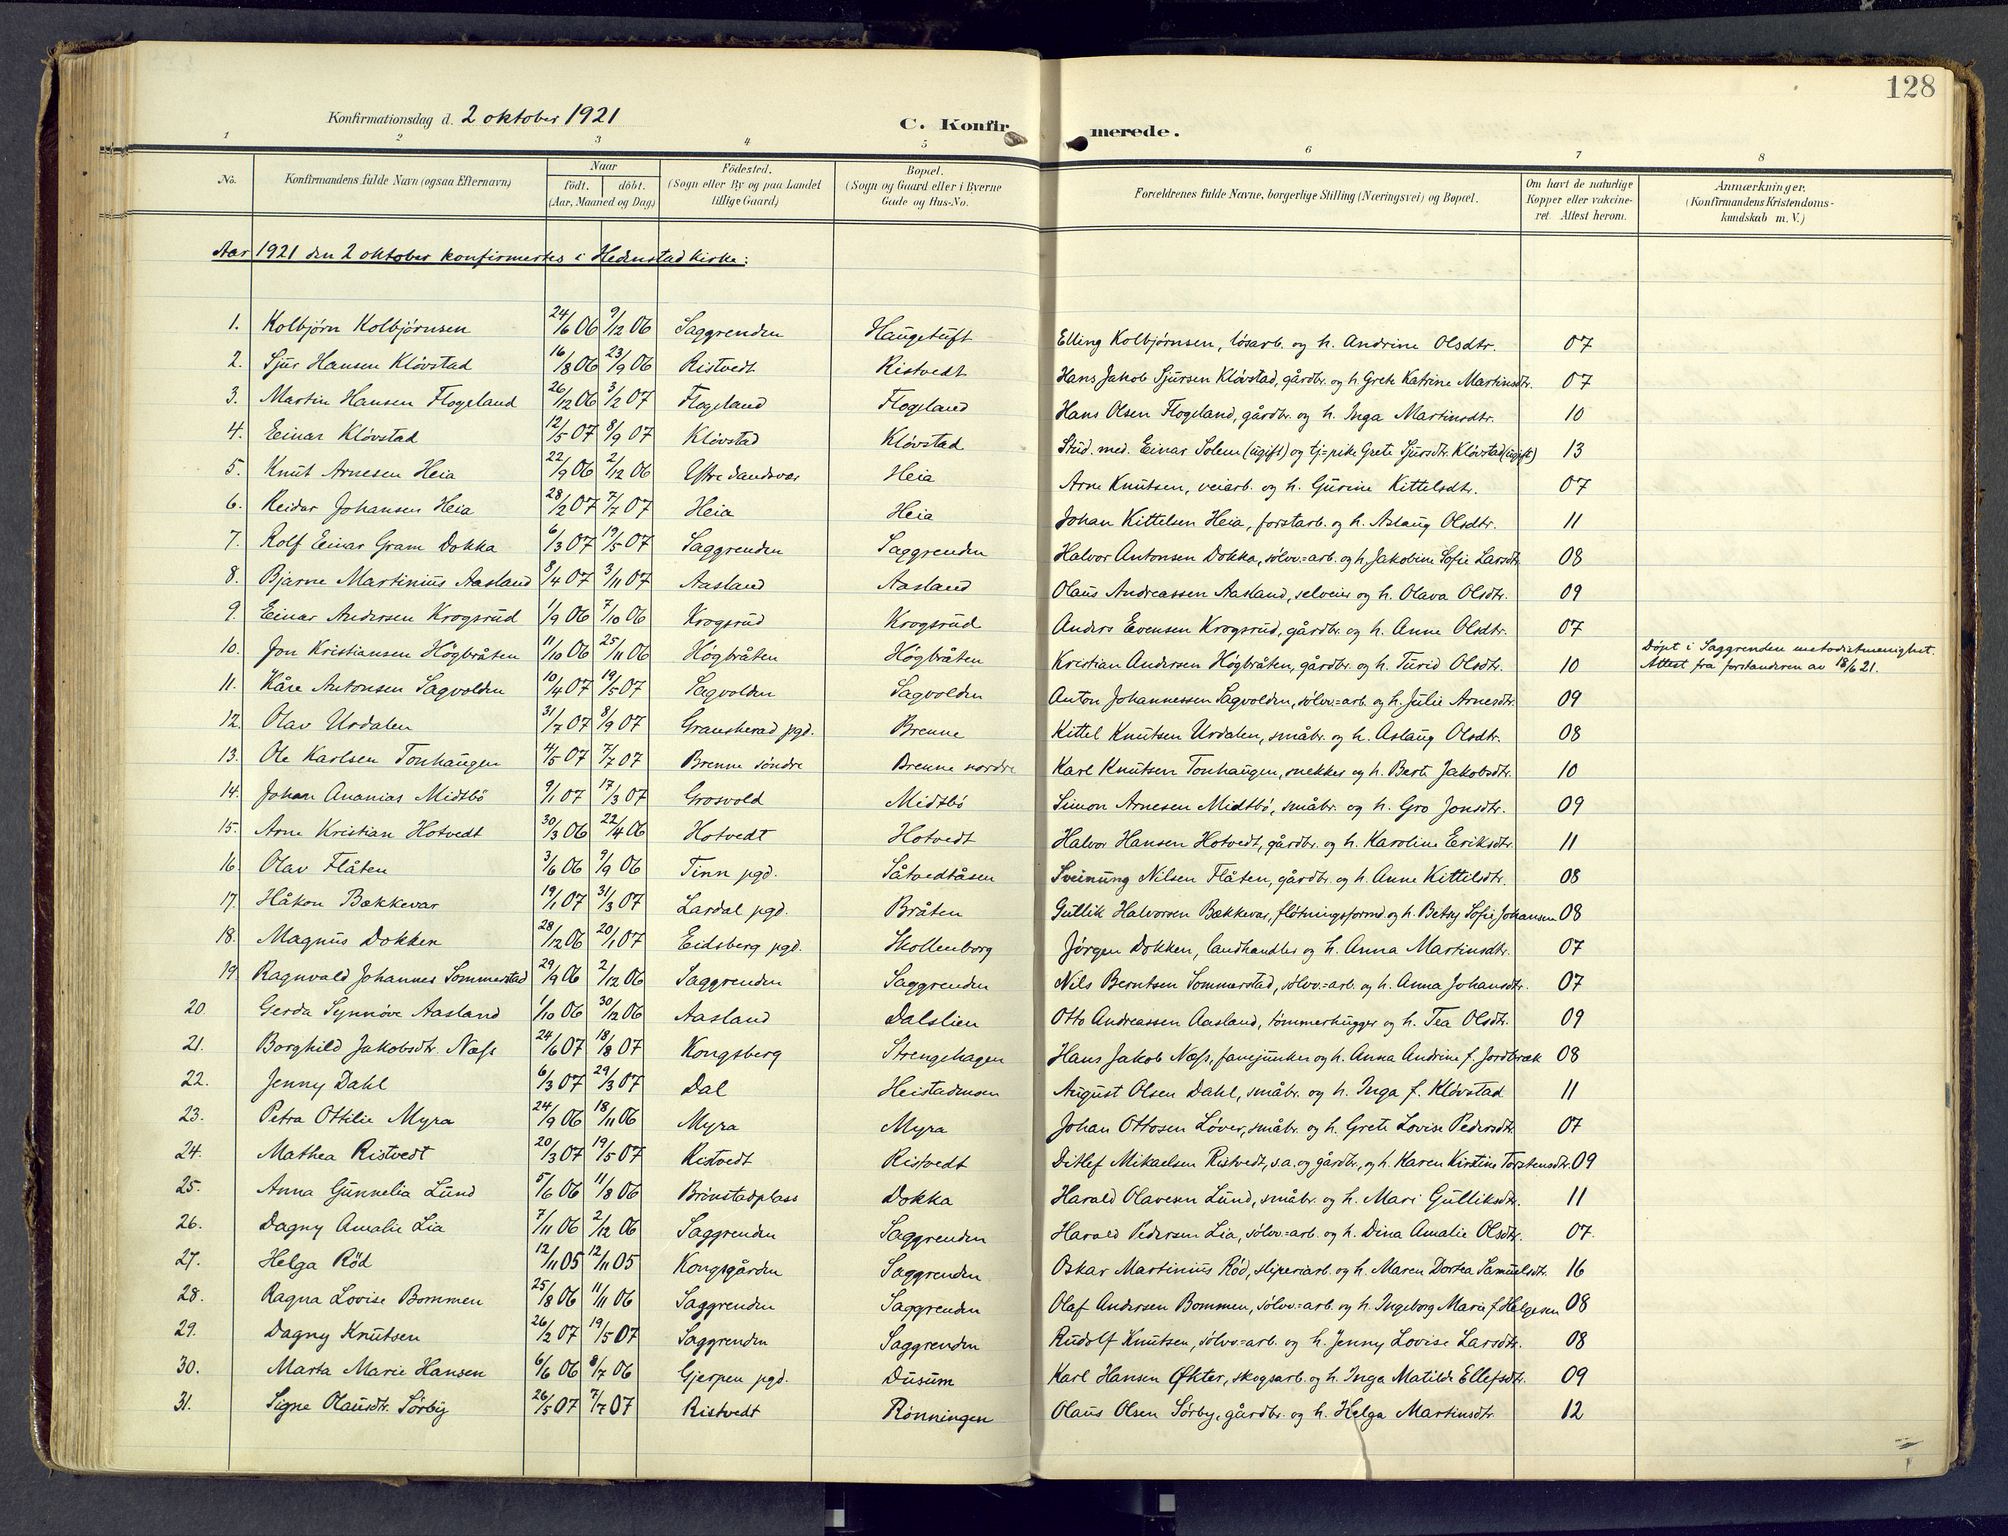 128
Konfirmationsdag d. 2 oktober 1921
C. Konfirmerede.
1 2 3 4 5 6 7 8
No. | Konfirmandens fulde Navn (ogsaa Efternavn) | Naar født. døbt. (Aar, Maaned og Dag) | Fødested. (Sogn eller By og paa Landet tillige Gaard) | Bopæl. (Sogn og Gaard eller i Byerne Gade og Hus-No. | Forældrenes fulde Navne, borgerlige Stilling (Næringsvei) og Bopæl. | Om havt de naturlige Kopper eller vakcineret Attest herom. | Anmærkninger. (Konfirmandens Kristendomskundskab m. V.)
Aar 1921 den 2 oktober konfirmertes i Hedenstad kirke:
1. Kolbjørn Kolbjørnsen 24/6 06 9/12 06 Saggrenden Haugetuft Elling Kolbjørnsen, løsarb. og h. Andrine Olsdtr. 07
2. Sjur Hansen Kløvstad 16/8 06 23/9 06 Ristvedt Ristvedt Hans Jakob Sjursen Kløvstad, gårdbr. og h. Grete Katrine Martinsdtr. 07
3. Martin Hansen Flogeland 26/12 06 3/2 07 Flogeland Flogeland Hans Olsen Flogeland, gårdbr. og h. Inga Martinsdtr. 10
4. Einar Kløvstad 12/5 07 8/9 07 Kløvstad Kløvstad Stud. med. Einar Solem (ugift) og tj=pike Grete Sjursdtr. Kløvstad (ugift) 13
5. Knut Arnesen Heia 22/9 06 2/12 06 Øfre Sandsvær Heia Arne Knutsen, veiarb. og h. Gurine Kittelsdtr. 07
6. Reidar Johansen Heia 28/2 07 7/7 07 Heia Heia Johan Kittelsen Heia, forstarb. og h. Aslaug Olsdtr. 11
7. Rolf Einar Gram Dokka 6/3 07 19/5 07 Saggrenden Saggrenden Halvor Antonsen Dokka, sølvv=arb. og h. Jakobine Sofie Larsdtr. 08
8. Bjarne Martinius Aasland 8/4 07 3/11 07 Aasland Aasland Olaus Andreassen Aasland, selveier og h. Olava Olsdtr. 09
9. Einar Andersen Krogsrud 1/9 06 7/10 06 Krogsrud Krogsrud Anders Evensen Krogsrud, gårdbr. og h. Anne Olsdtr. 07
10. Jon Kristiansen Høgbråten 11/10 06 25/11 06 Høgbråten Høgbråten Kristian Andersen Høgbråten, gårdbr. og h. Turid Olsdtr. 10 Døpt i Saggrenden metodistmenighet. Attest fra forstanderen av 18/6 21.
11. Kåre Antonsen Sagvolden 10/4 07 19/5 07 Sagvolden Sagvolden Anton Johannessen Sagvolden, sølvv=arb. og h. Julie Arnesdtr. 09
12. Olav Urdalen 31/7 07 8/9 07 Gransherad pgd. Brenne Kittel Knutsen Urdalen, småbr. og h. Aslaug Olsdtr. 08
13. Ole Karlsen Tonhaugen 4/5 07 7/7 07 Brenne søndre Brenne nordre Karl Knutsen Tonhaugen, snekker og h. Berte Jakobsdtr. 10
14. Johan Ananias Midtbø 9/1 07 17/3 07 Grosvold Midtbø Simon Arnesen Midtbø, småbr. og h. Gro Jonsdtr. 09
15. Arne Kristian Hotvedt 30/3 06 22/4 06 Hotvedt Hotvedt Halvor Hansen Hotvedt, gårdbr. og h. Karoline Eriksdtr. 11
16. Olav Flåten 3/6 06 9/9 06 Tinn pgd. Såtvedtåsen Sveinung Nilsen Flåten, gårdbr. og h. Anne Kittilsdtr. 08
17. Håkon Bækkevar 19/1 07 31/3 07 Lardal pgd. Bråten Gullik Halvorsen Bækkevar, fløtningsformd og h. Betsy Sofie Johansen 08
18. Magnus Dokken 28/12 06 20/1 07 Eidsberg pgd. Skollenborg Jørgen Dokken, landhandler og h. Anna Martinsdtr. 07
19 Ragnvald Johannes Sommerstad 29/9 06 2/12 06 Saggrenden Saggrenden Nils Berntsen Sommerstad, sølvv=arb. og h. Anna Johansdtr. 07
20. Gerda Synnøve Aasland 1/10 06 30/12 06 Aasland Dalslien Otto Andreassen Aasland, tømmerhugger og h. Tea Olsdtr. 09
21. Borghild Jakobsdtr. Næss 24/6 07 18/8 07 Kongsberg Strengehagen Hans Jakob Næss, fanejunker og h. Anna Andrine f. Jordbræk 08
22. Jenny Dahl 6/3 07 29/3 07 Dal Heistadmoen August Olsen Dahl, småbr. og h. Inga f. Kløvstad 11
23. Petra Ottilie Myra 24/9 06 18/11 06 Myra Myra Johan Ottosen Løver, småbr. og h. Grete Lovise Pedersdtr. 07
24. Mathea Ristvedt 20/3 07 19/5 07 Ristvedt Ristvedt Ditlef Mikaelsen Ristvedt, s.a. og gårdbr. og h. Karen Kirstine Torstensdtr. 09
25. Anna Gunnelia Lund 5/6 06 11/8 06 Brønstadplass Dokka Harald Olavesen Lund, småbr. og h. Mari Gulliksdtr. 11
26. Dagny Amalie Lia 7/11 06 2/12 06 Saggrenden Saggrenden Harald Pedersen Lia, sølvv=arb. og h. Dina Amalie Olsdtr. 07.
27. Helga Rød 12/11 05 12/11 05 Kongsgården Saggrenden Oskar Martinius Rød, sliperiarb. og h. Maren Dortea Samuelsdtr. 16
28. Ragna Lovise Bommen 25/8 06 11/11 06 Saggrenden Saggrenden Olaf Andersen Bommen, sølvv=arb. og h. Ingeborg Marie f. Helgesen 08
29. Dagny Knutsen 26/2 07 19/5 07 Saggrenden Saggrenden Rudolf Knutsen, sølvv=arb. og h. Jenny Lovise Larsdtr. 08
30. Marta Marie Hansen 6/6 06 8/7 06 Gjerpen pgd. Dusum Karl Hansen Økter, skogsarb. og h. Inga Matilde Ellefsdtr. 09
31. Signe Olausdtr. Sørby 26/5 07 7/7 07 Ristvedt Rønningen Olaus Olsen Sørby, gårdbr. og h. Helga Martinsdtr. 12